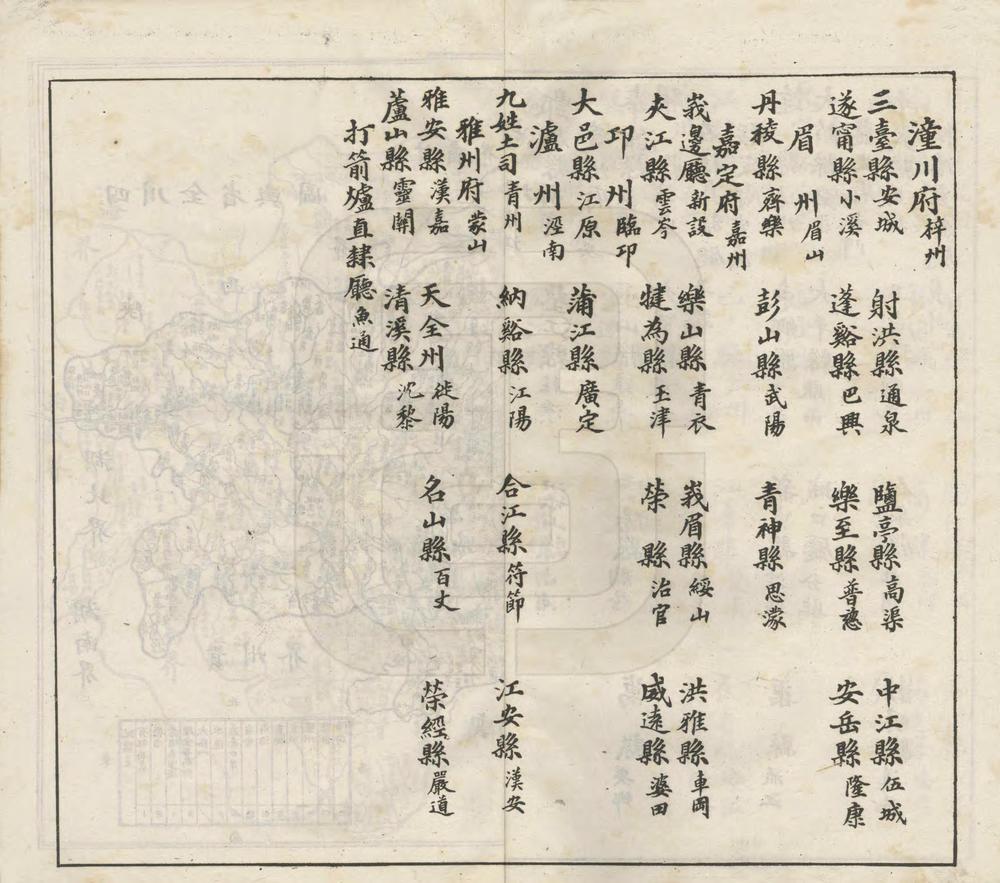 潼川府梓州
三臺縣安城 射洪縣通泉 鹽亭縣高渠 中江縣伍城
遂甯縣小溪 蓬谿縣巴興 樂至縣普慈 安岳縣隆康
眉州眉山
丹稜縣齊樂 彭山縣武陽 青神縣思濛
嘉定府嘉州
峩邊廳新設 樂山縣青衣 峩眉縣綏山 洪雅縣車岡
夾江縣雲岑 犍為縣玉津 榮縣治官 威遠縣婆田
邛州臨邛
大邑縣江原 蒲江縣廣定
瀘州瀘南
九姓土司青州 納谿縣江陽 合江縣符節 江安縣漢安
雅州府蒙山
雅安縣漢嘉 天全州徙陽 名山縣百丈 榮經縣嚴道
蘆山縣靈關 清溪縣沈黎
打箭爐直隸廳魚通